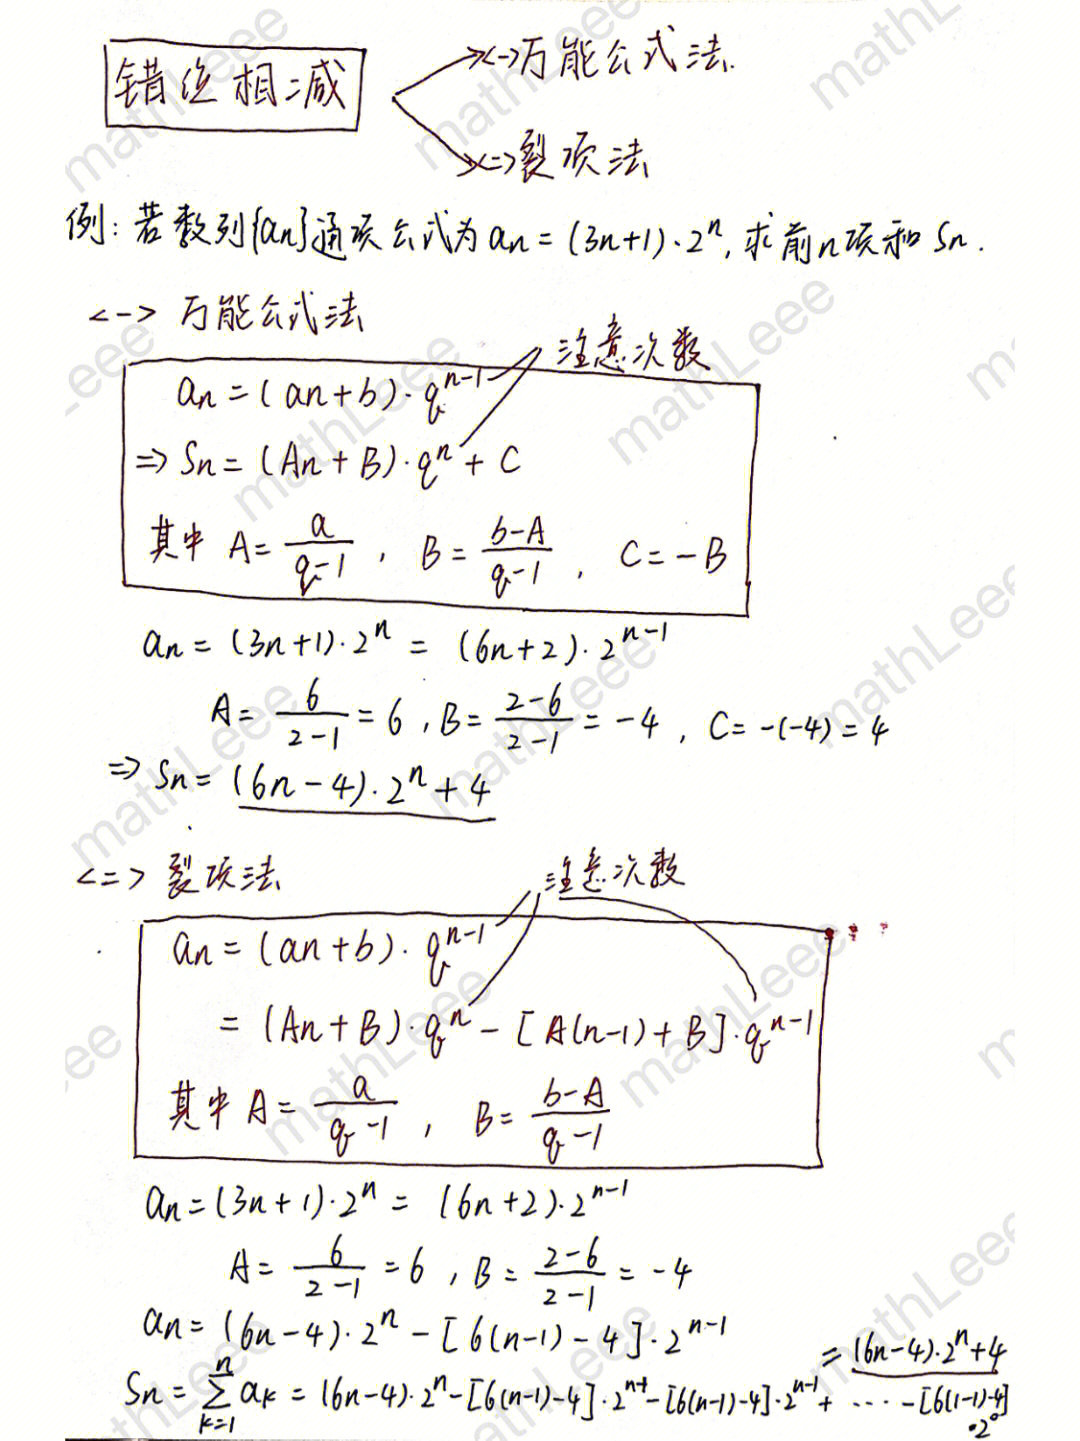 错位相减
<一>万能公式法.
<二>裂项法
例: 若数列{an}通项公式为an=(3n+1)·2^n, 求前n项和Sn.
<一> 万能公式法
注意次数
an=(an+b)·q^(n-1)
⇒Sn=(An+B)·q^n+C
其中 A=a/(q-1), B=(b-A)/(q-1), C=-B
an=(3n+1)·2^n=(6n+2)·2^(n-1)
A=6/(2-1)=6, B=(2-6)/(2-1)=-4, C=-(-4)=4
⇒Sn=(6n-4)·2^n+4
<二> 裂项法
注意次数
an=(an+b)·q^(n-1)
=(An+B)·q^n-[A(n-1)+B]·q^(n-1)
其中 A=a/(q-1), B=(b-A)/(q-1)
an=(3n+1)·2^n=(6n+2)·2^(n-1)
A=6/(2-1)=6, B=(2-6)/(2-1)=-4
an=(6n-4)·2^n-[6(n-1)-4]·2^(n-1)
Sn=∑(k=1→n) ak=(6n-4)·2^n-[6(n-1)-4]·2^(n-1)-[6(n-1)-4]·2^(n-1)+···-[6(1-1)-4]·2^0
=(6n-4)·2^n+4
mathLeee